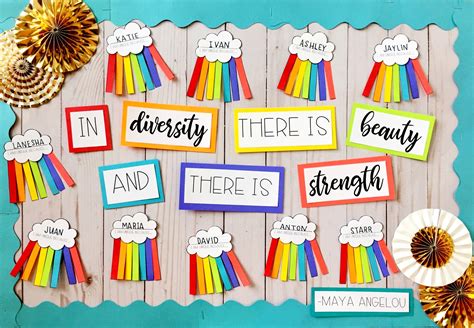 KATIE
IVAN
ASHLEY
JAYLIN
IN diversity THERE IS beauty
LANESHA
AND THERE IS strength
JUAN
MARIA
DAVID
ANTON
STARR
-MAYA ANGELOU